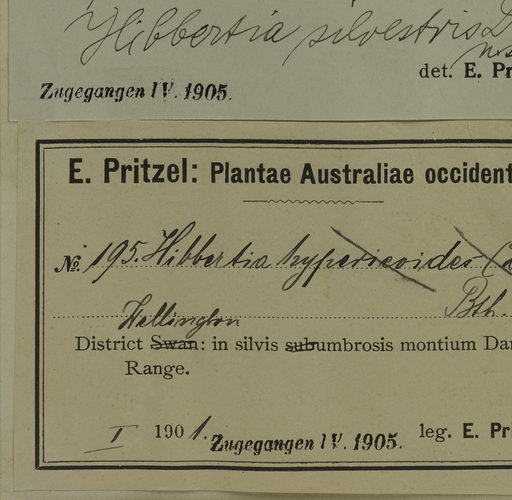 Hibbertia silvestris D
n.s
det. E. Pr
Zugegangen IV. 1905.
E. Pritzel: Plantae Australiae occident
No. 195. Hibbertia hypericoides (
Bth.
Wellington
District Swan: in silvis subumbrosis montium Da
Range.
I 1901. Zugegangen IV. 1905. leg. E. Pr